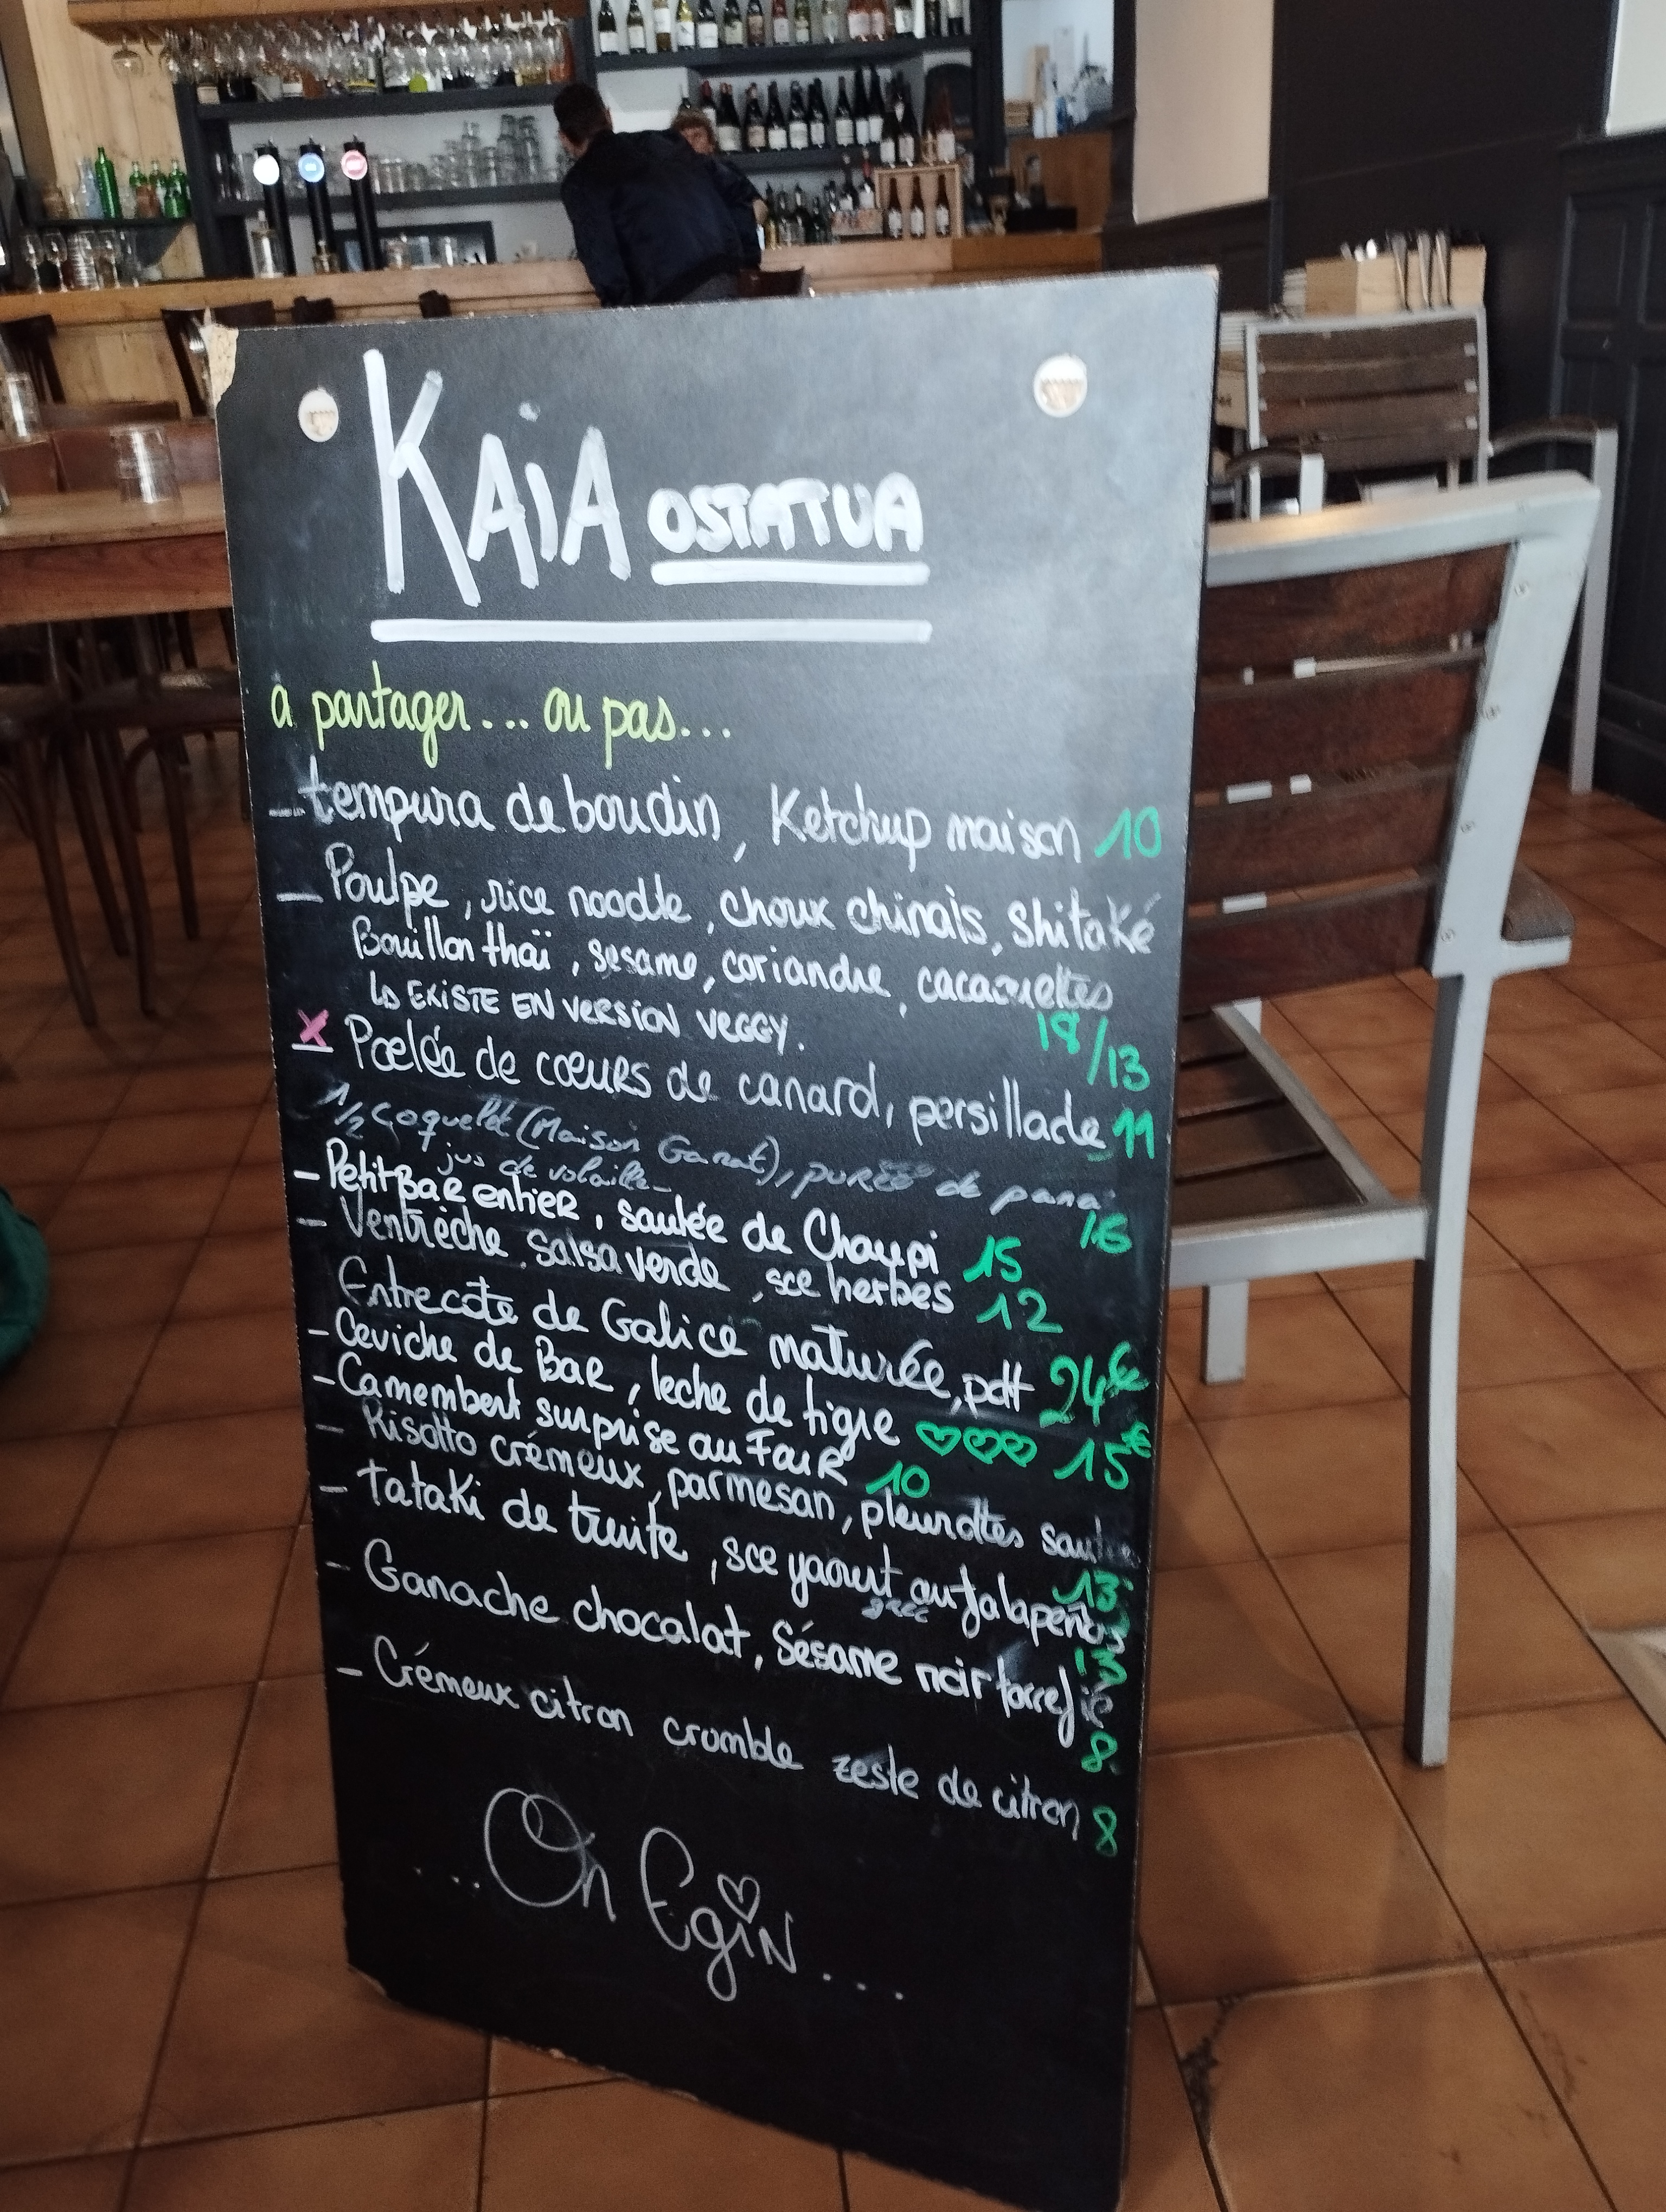 KAiA OSTATUA
à partager... ou pas...
- tempura de boudin, Ketchup maison 10
- Poulpe, rice noodle, choux chinois, Shitaké
Bouillon thaï, sesame, coriandre, cacaouettes
Ls EXISTE EN VERSION VEGGY. 18/13
x Poelée de coeurs de canard, persillade 11
1/2 coquelet (Maison Ganat), purée de panai
jus de volaille- 16
- Petit BAR entier, sautée de Choupi 15
- Ventrèche, salsa verde, sce herbes 12
Entrecote de Galice maturée, pdt 24€
- Ceviche de BAR, leche de tigre ♡♡♡ 15€
- Camembert surprise au FouR 10
- Risotto crémeux, parmesan, pleurottes 13
- tataki de truite, sce yaourt grec au Jalapeños 13
- Ganache chocolat, Sésame noir torrefié 8
- Crémeux citron crumble zeste de citron 8
....On EgiN...